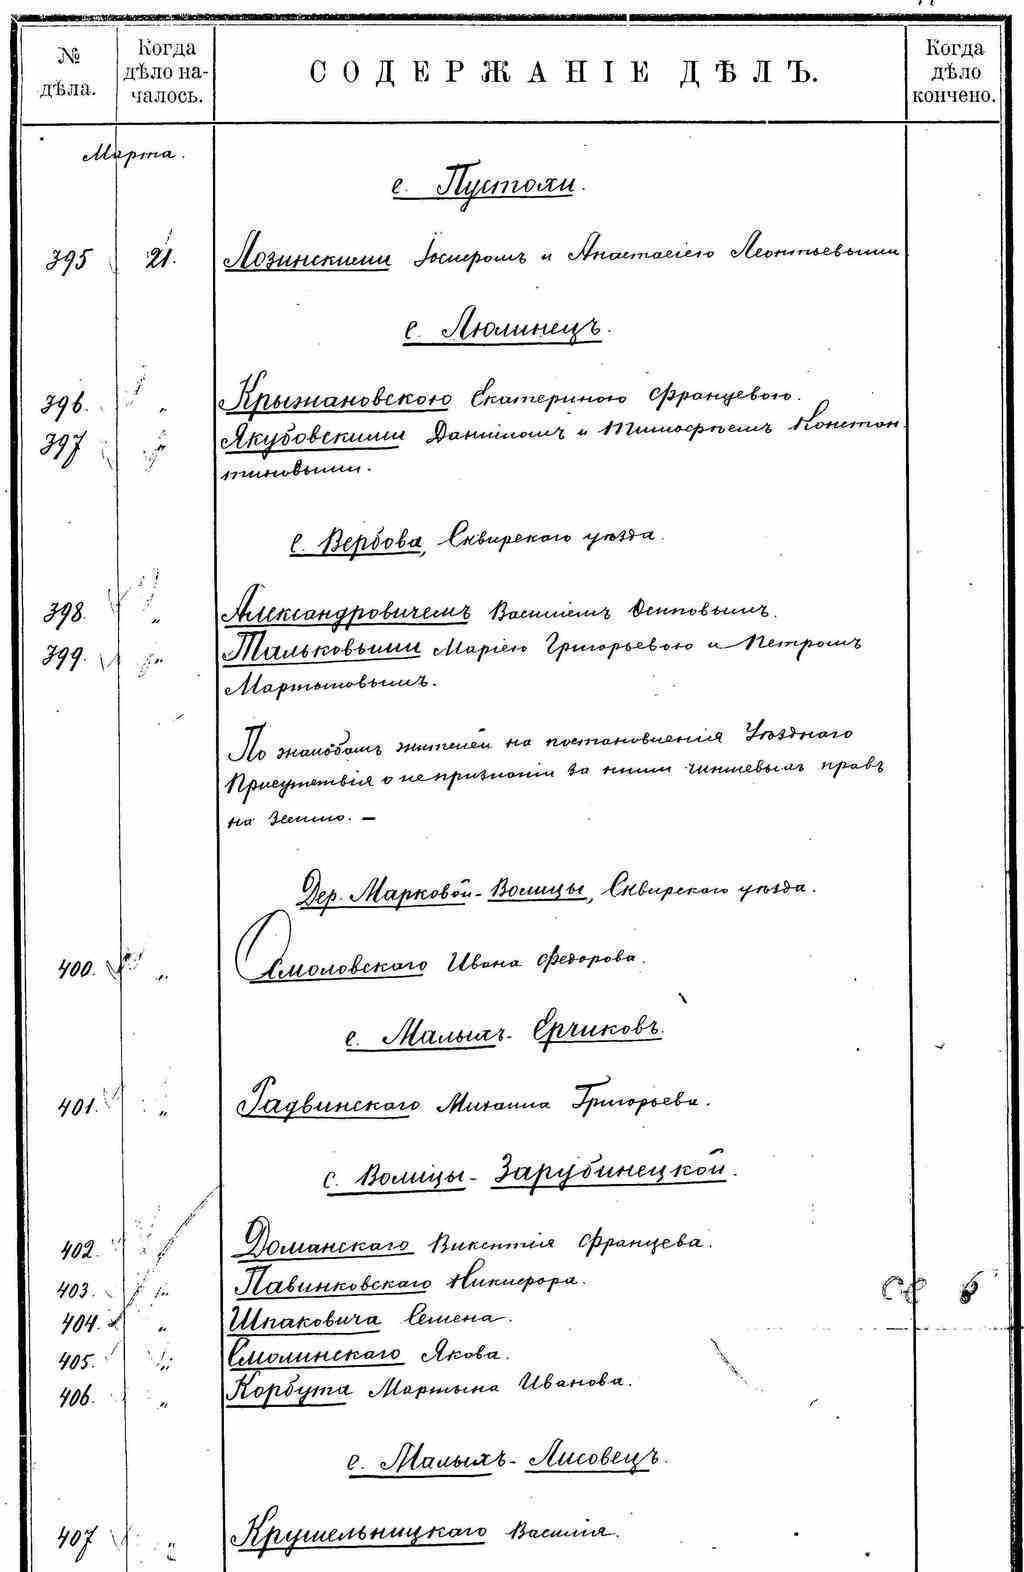 № дѣла.
Когда дѣло на-чалось.
СОДЕРЖАНІЕ ДѢЛЪ.
Когда дѣло кончено.
Марта.
с. Пустохи.
395 21. Лозинскими Іосифомъ и Анастасіею Леонтьевыми
с. Люлинецъ.
396. " Крыжановскою Екатериною Францевою.
397 " Якубовскими Даніиломъ и Тимофѣемъ Констан-
тиновыми.
с. Вербова, Сквирскаго уѣзда.
398. " Александровичемъ Василіемъ Осиповымъ.
399. " Тальковыми Маріею Григорьевою и Петромъ
Мартыновымъ.
По жалобамъ жителей на постановленія Уѣзднаго
Присутствія о непризнаніи за ними чиншевыхъ правъ
на землю. —
Дер. Марковой-Волицы, Сквирскаго уѣзда.
400. " Смоловскаго Ивана Федорова.
с. Малыхъ-Ерчиковъ.
401. " Радвинскаго Михаила Григорьева.
с. Волицы-Зарубинецкой.
402. Доманскаго Викентія Францева.
403. " Павинковскаго Никифора.
404. " Шпаковича Семена.
405. " Смолинскаго Якова.
406. " Корбута Мартына Иванова.
с. Малыхъ-Лисовецъ.
407 " Крушельницкаго Василія.